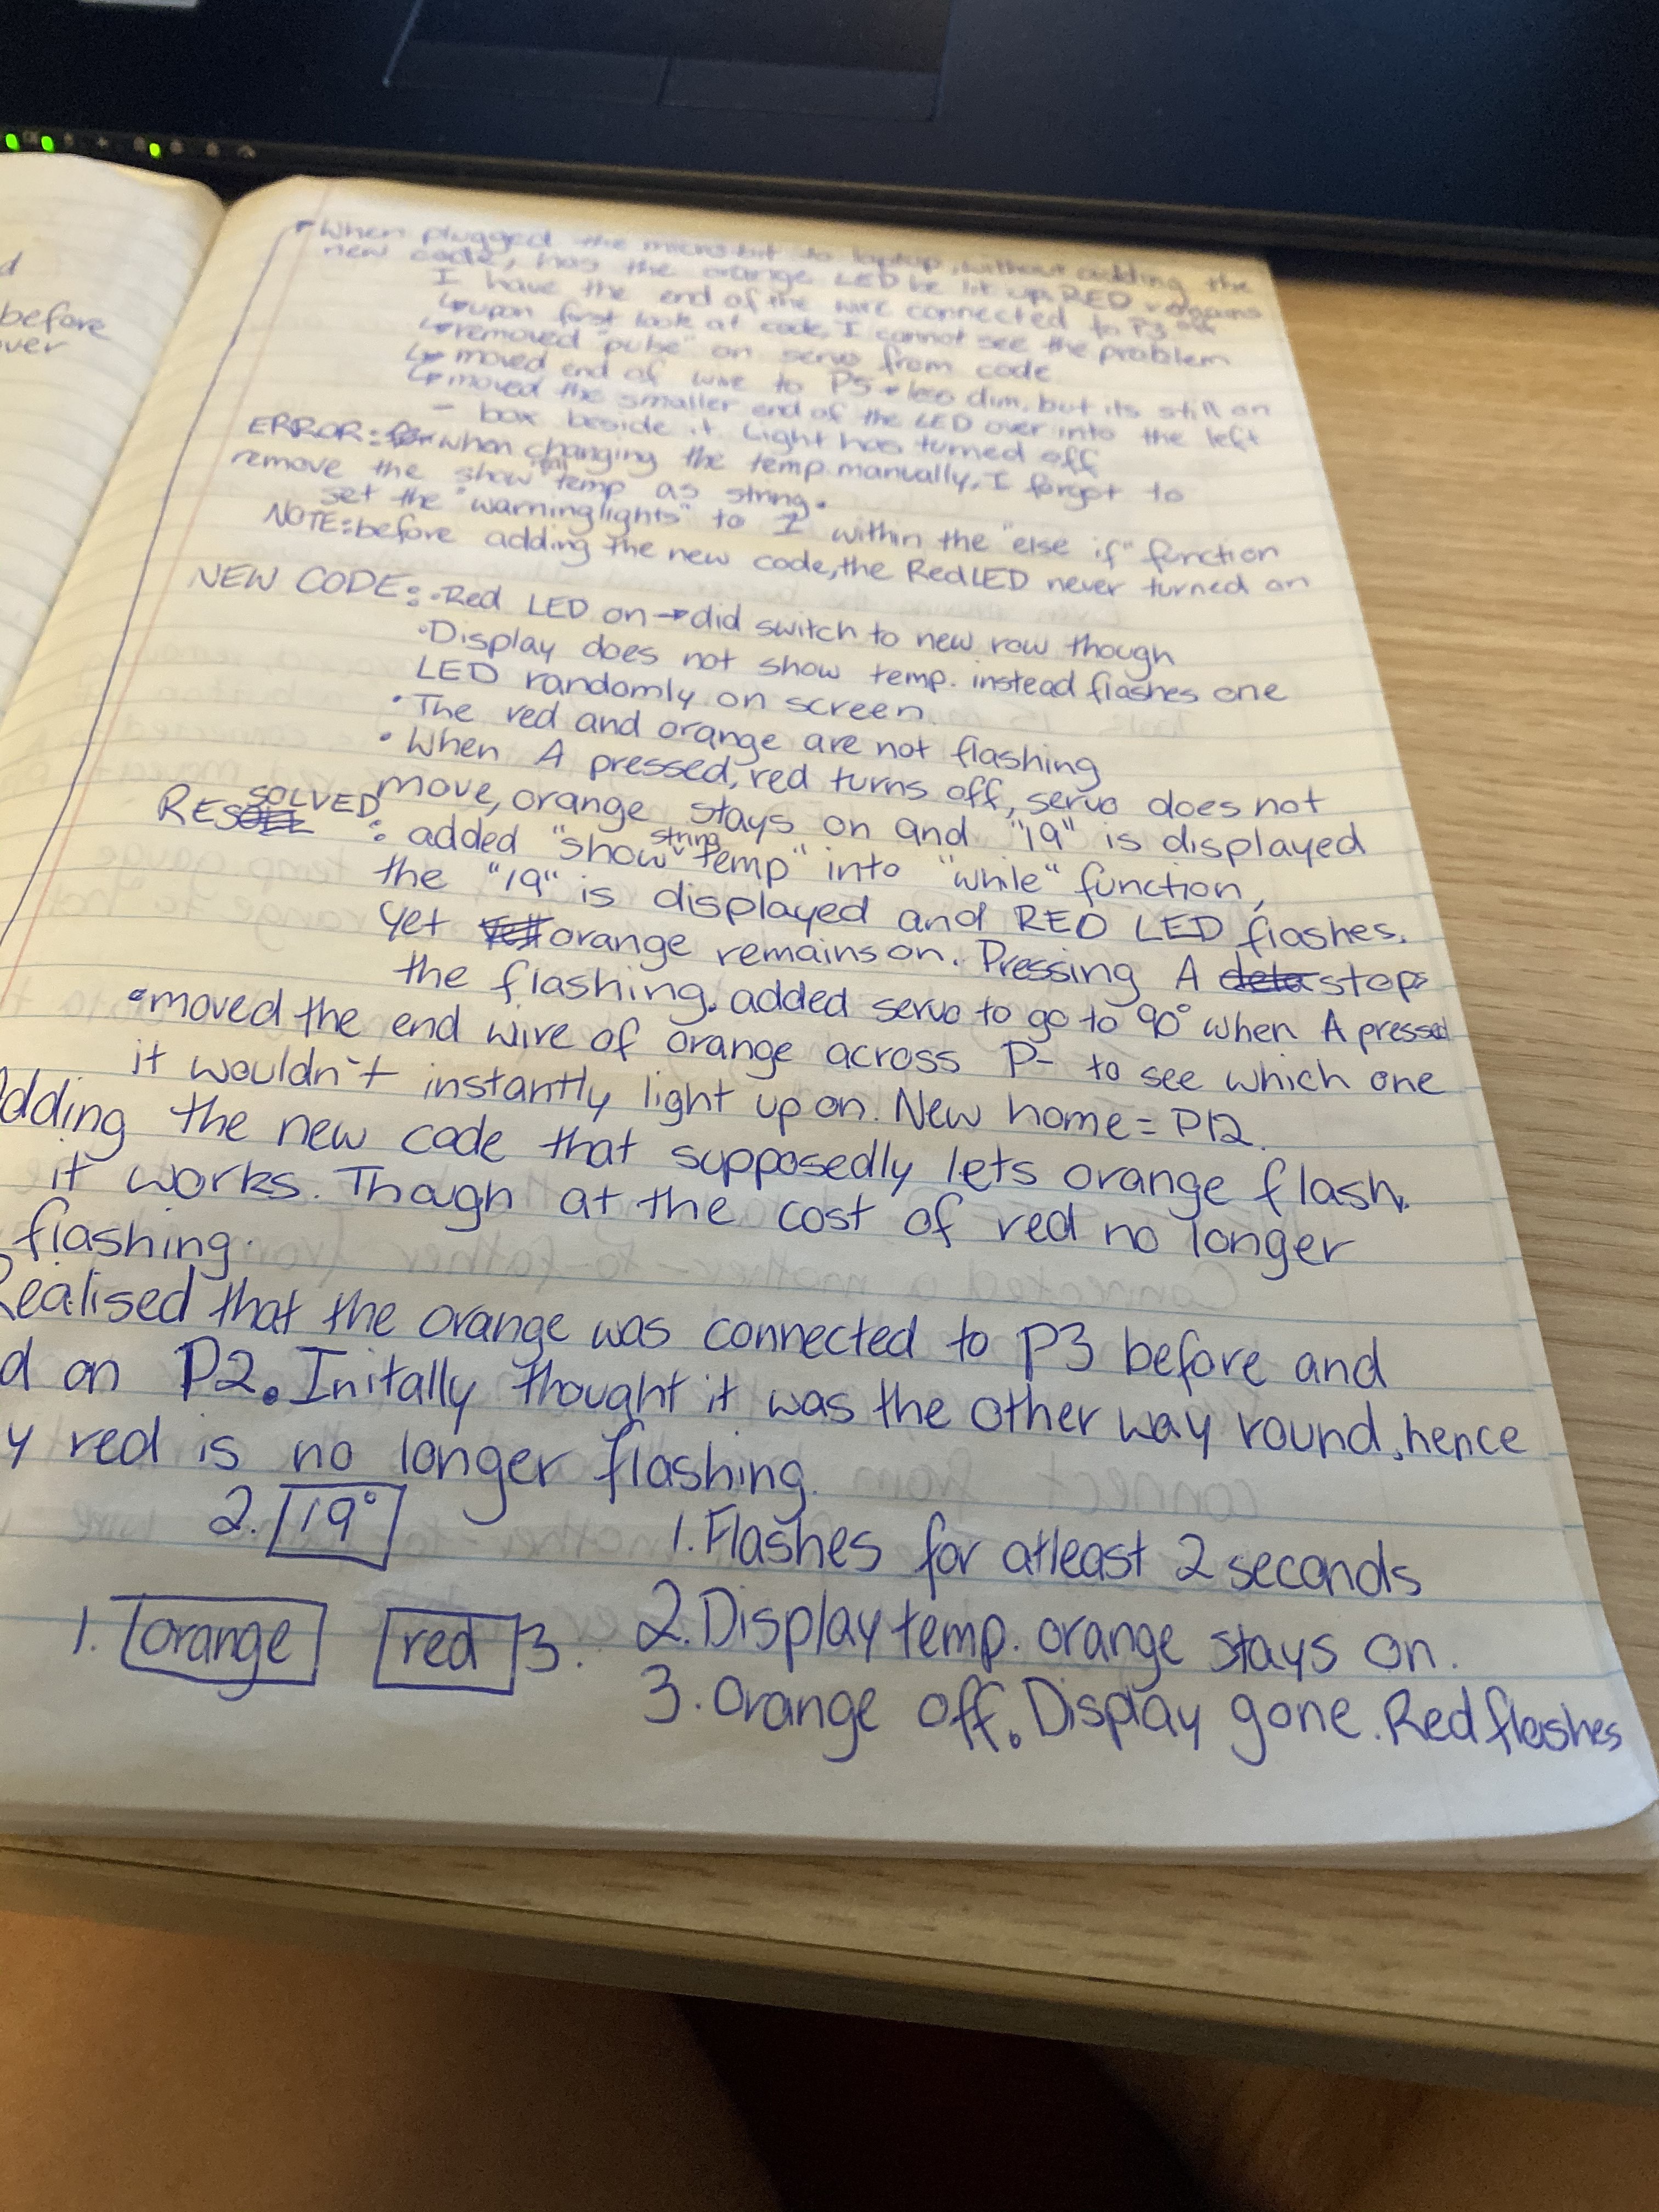 d
before
over
When plugged the micro:bit to laptop, without adding the
new code, has the orange LED be lit up. RED remains off
I have the end of the wire connected to P3
upon first look at code, I cannot see the problem
removed "pulse" on servo from code
moved end of wire to P5 → less dim, but its still on
moved the smaller end of the LED over into the left
- box beside it. Light has turned off
ERROR: when changing the temp. manually, I forgot to
remove the show temp as string.
set the "warninglights" to 1 within the "else if" function
NOTE: before adding the new code, the Red LED never turned on
NEW CODE: •Red LED on → did switch to new row though
•Display does not show temp. instead flashes one
LED randomly on screen
•The red and orange are not flashing
•When A pressed, red turns off, servo does not
move, orange stays on and "19" is displayed
RESOLVED: added "show string temp" into "while" function,
the "19" is displayed and RED LED flashes.
yet orange remains on. Pressing A stops
the flashing. added servo to go to 90° when A pressed
•moved the end wire of orange across P- to see which one
it wouldn't instantly light up on. New home = P12.
Adding the new code that supposedly lets orange flash.
it works. Though at the cost of red no longer
flashing.
Realised that the orange was connected to P3 before and
d on P2. Initally thought it was the other way round, hence
y red is no longer flashing.
2. 19° 1. Flashes for atleast 2 seconds
1. orange red 3. 2. Display temp. orange stays on.
3. Orange off. Display gone. Red flashes